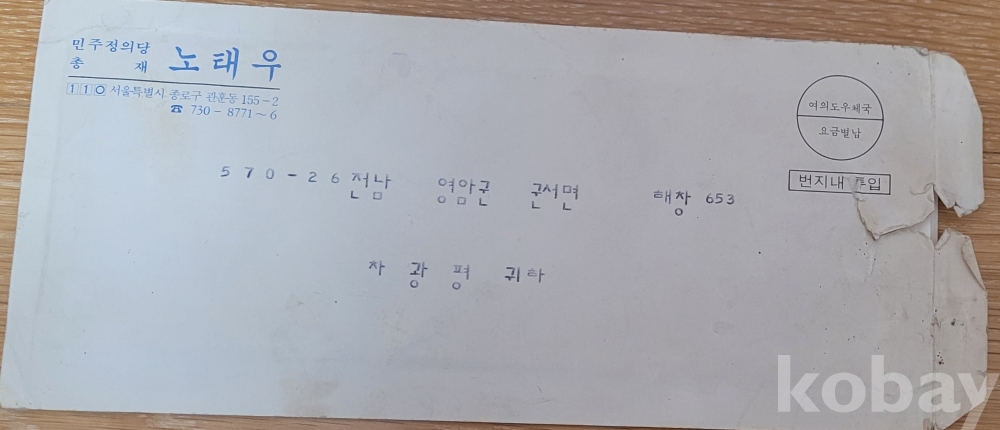 민주정의당
총 재 노태우
110 서울특별시 종로구 관훈동 155-2
☎ 730-8771~6
여의도우체국
요금별납
번지내 투입
570-26 전남 영암군 군서면 해창 653
차광평 귀하
kobay